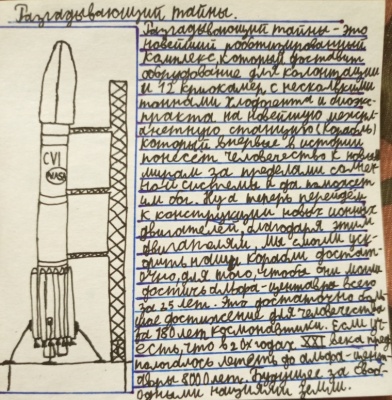 Разгадывающий тайны.
Разгадывающий тайны - это
новейший роботизированный
комплекс, который доставит
оборудование для колонизации
и 12 криокамер с несколькими
тоннами хладогента и биоэкс-
тракта на новейшую межпл-
анетную станцию (корабль)
который впервые в истории
понесет человечество к новым
мирам за пределами солнеч-
ной системы и да поможет
им бог. Ну а теперь перейдем
к конструкции новых ионных
двигателей, благодаря этим
двигателям, мы смогли уск-
орить нашу корабли достат-
очно, для того, чтобы они могли
достичь альфа-центавра всего
за 25 лет. Это достаточно боль-
шое достижение для человечества
за 180 лет космонавтики. Если уч-
есть, что в 20х годах XXI века пред-
пологалось лететь до альфа-цента-
вры 8000 лет. Будущее за своб-
одными нациями земли.
CVI
NASA